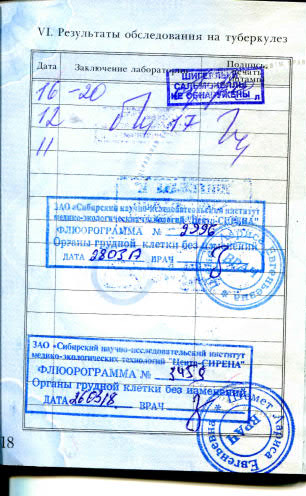 VI. Результаты обследования на туберкулез
Дата Заключение лаборатории Подпись, печать
ШИГЕЛЛЫ
САЛЬМОНЕЛЛЫ
НЕ ОБНАРУЖЕНЫ
16-20
12 17
11
ЗАО «Сибирский научно-исследовательский институт
медико-экологических технологий "Центр-СИРЕНА"
ФЛЮОРОГРАММА № 2996
Органы грудной клетки без изменений
ДАТА ВРАЧ
ВРАЧ
Евгеньевна
ЗАО «Сибирский научно-исследовательский институт
медико-экологических технологий "Центр-СИРЕНА"
ФЛЮОРОГРАММА № 3458
Органы грудной клетки без изменений
ДАТА 260318 ВРАЧ
ВРАЧ
Лариса Евгеньевна
18